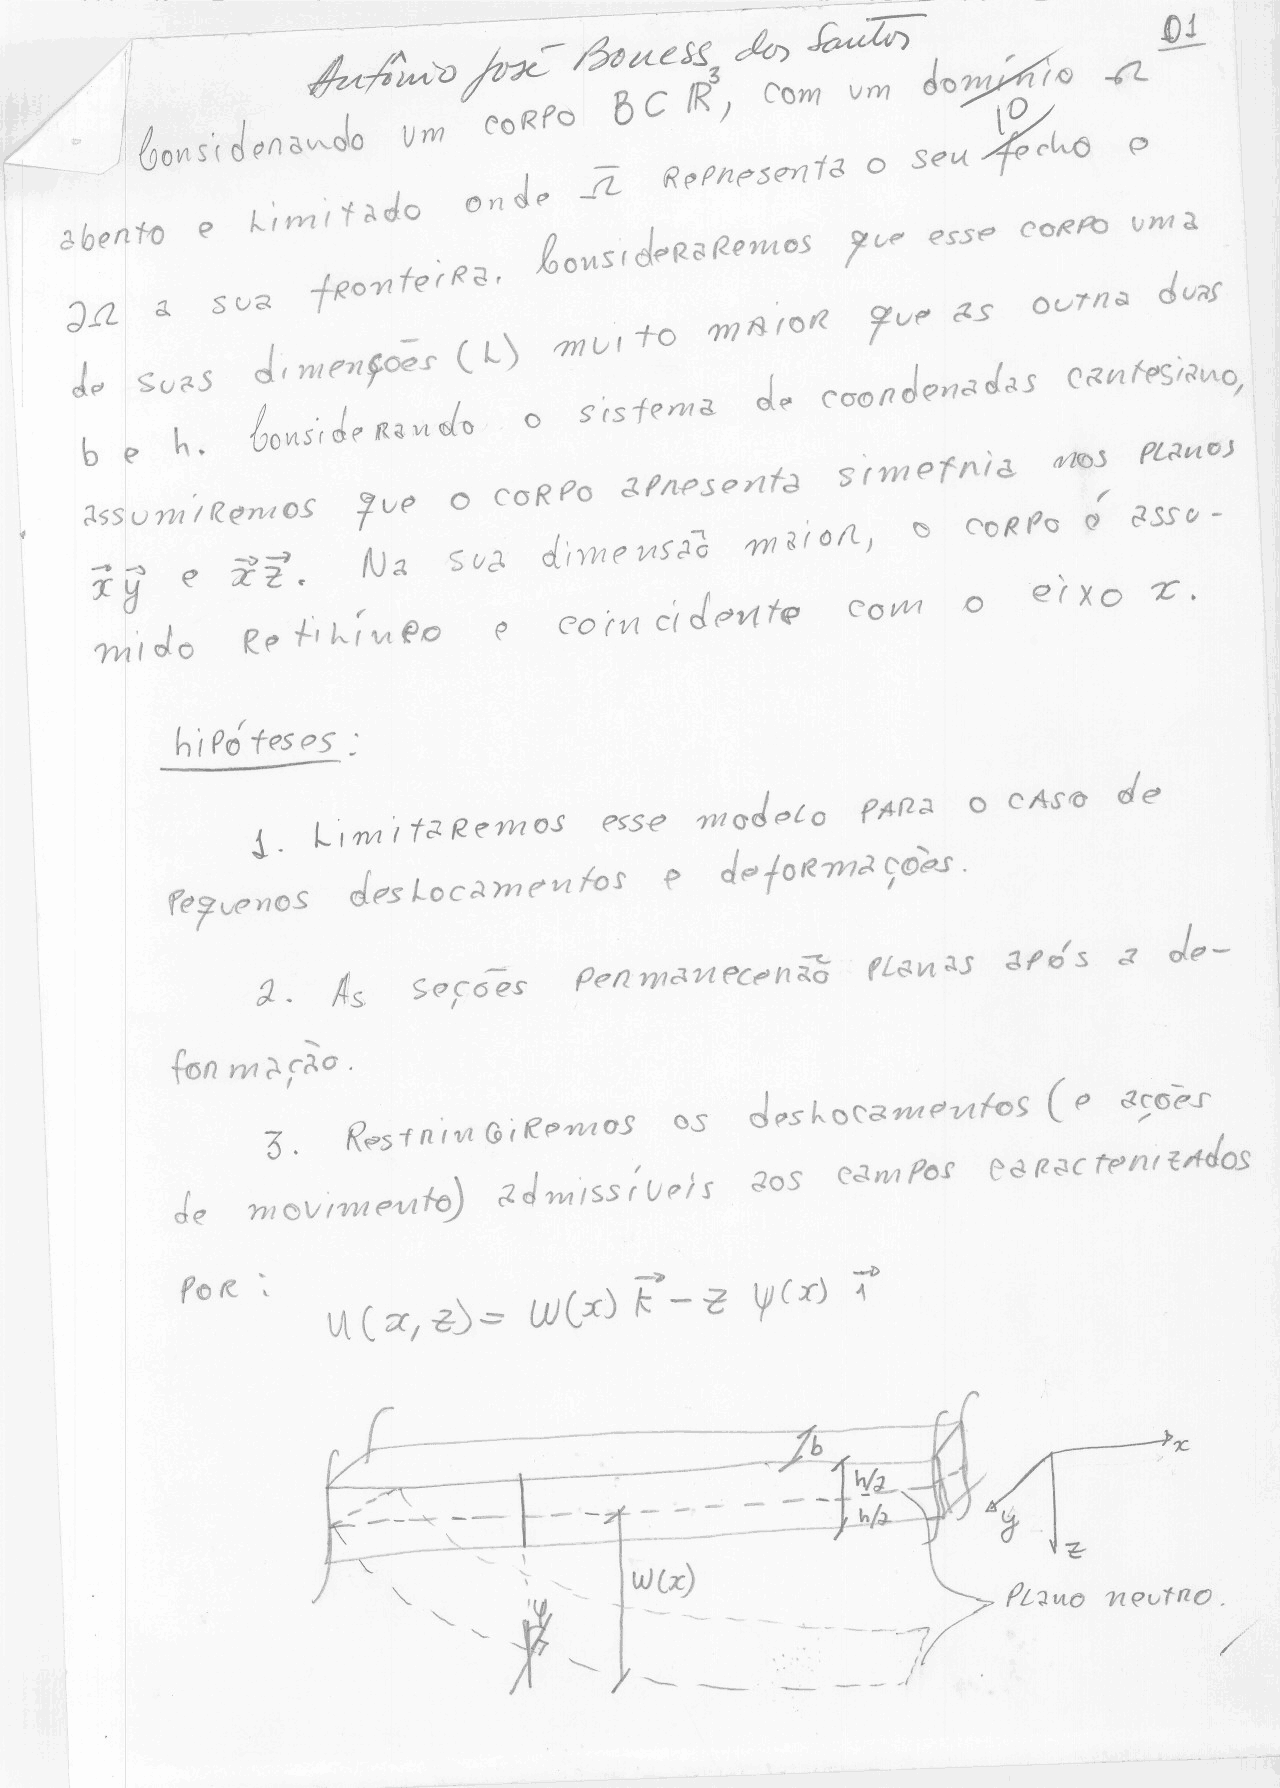 01
Antônio José Boness dos Santos
Considerando um corpo B ⊂ ℝ³, com um domínio Ω
10
aberto e Limitado onde Ω̄ Representa o seu fecho e
∂Ω a sua fronteira. Consideraremos que esse corpo uma
de suas dimenções (L) muito maior que as outra duas
b e h. Considerando o sistema de coordenadas cartesiano,
assumiremos que o corpo apresenta simetria nos planos
x⃗y⃗ e x⃗z⃗. Na sua dimensão maior, o corpo é assu-
mido Retilíneo e coincidente com o eixo x.
hipóteses:
1. Limitaremos esse modelo para o caso de
pequenos deslocamentos e deformações.
2. As seções permanecerão planas após a de-
formação.
3. Restringiremos os deslocamentos (e ações
de movimento) admissíveis aos campos caracterizados
por:
u(x,z) = w(x) k⃗ - z ψ(x) i⃗
b
h/2
h/2
x
y
z
w(x)
ψ
Plano neutro.